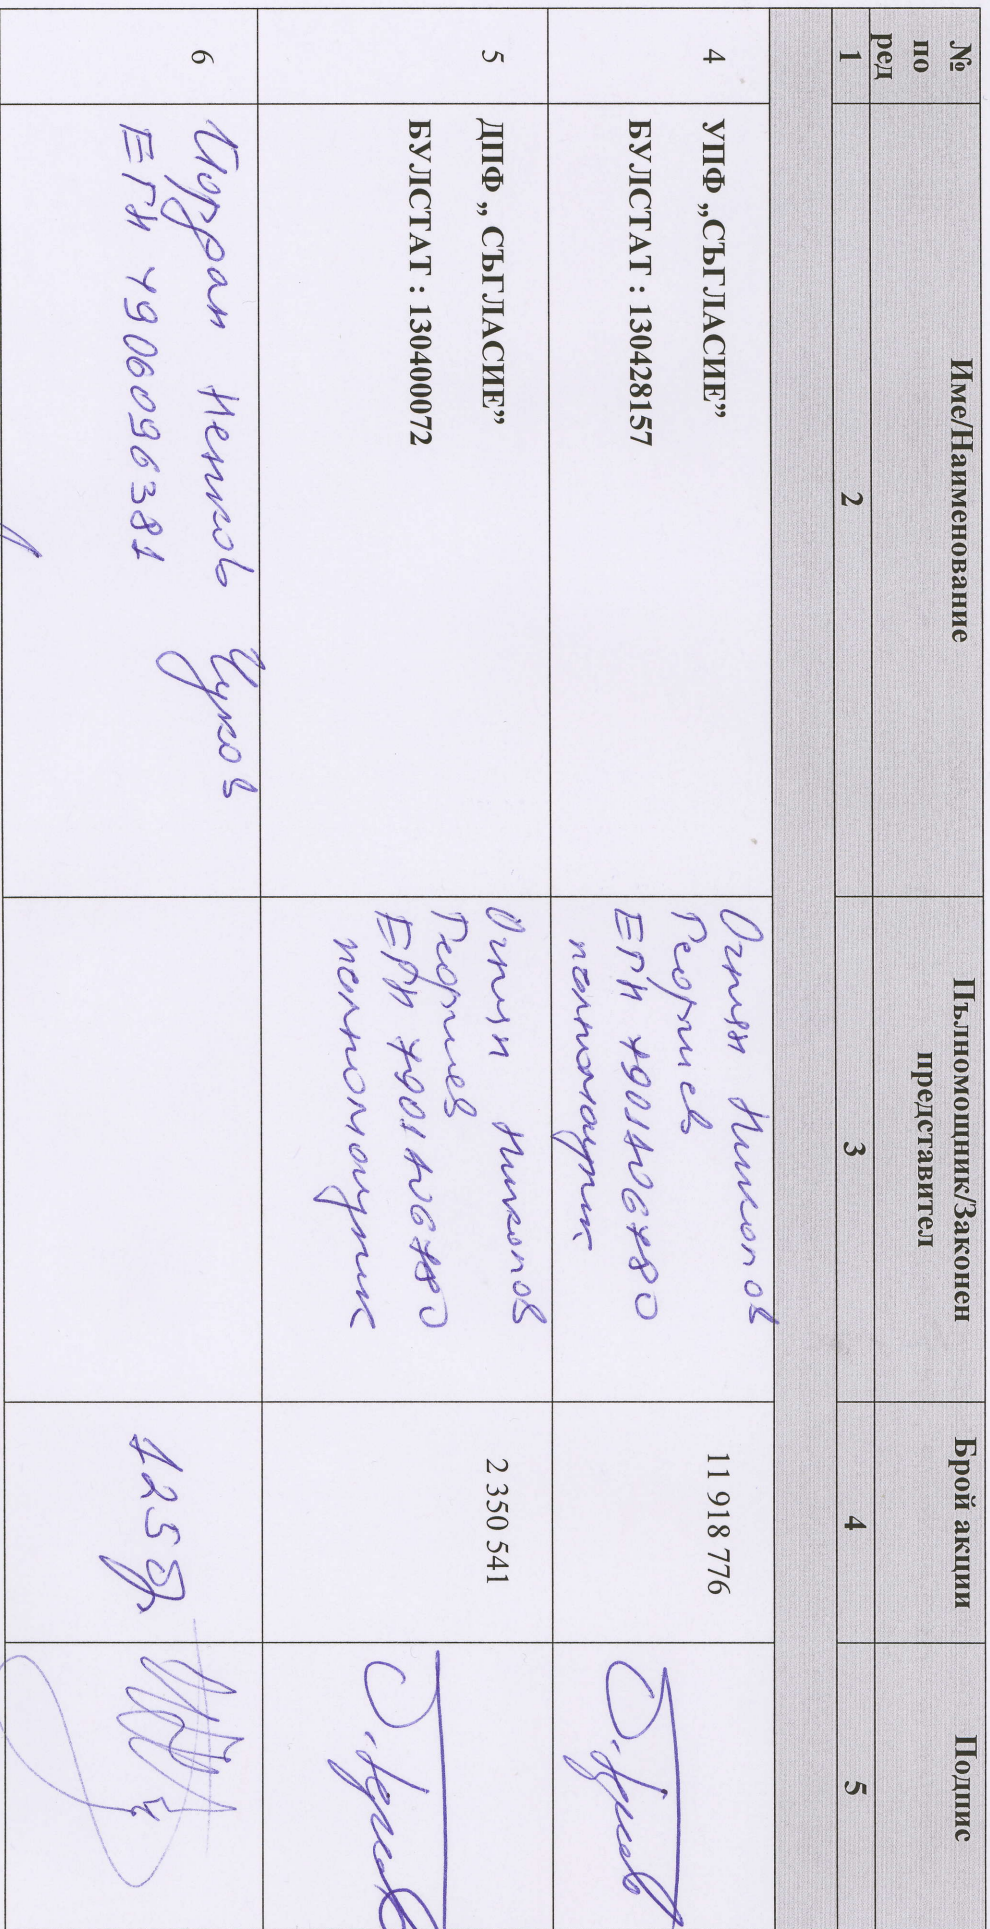 № по ред
Име/Наименование
Пълномощник/Законен представител
Брой акции
Подпис
1
2
3
4
5
4
УПФ „СЪГЛАСИЕ”
БУЛСТАТ : 130428157
Огнян Николов
Георгиев
ЕГН 7901106780
пълномощник
11 918 776
5
ДПФ „ СЪГЛАСИЕ”
БУЛСТАТ : 130400072
Огнян Николов
Георгиев
ЕГН 7901106780
пълномощник
2 350 541
6
Йордан Ненков Цуков
ЕГН 4906096381